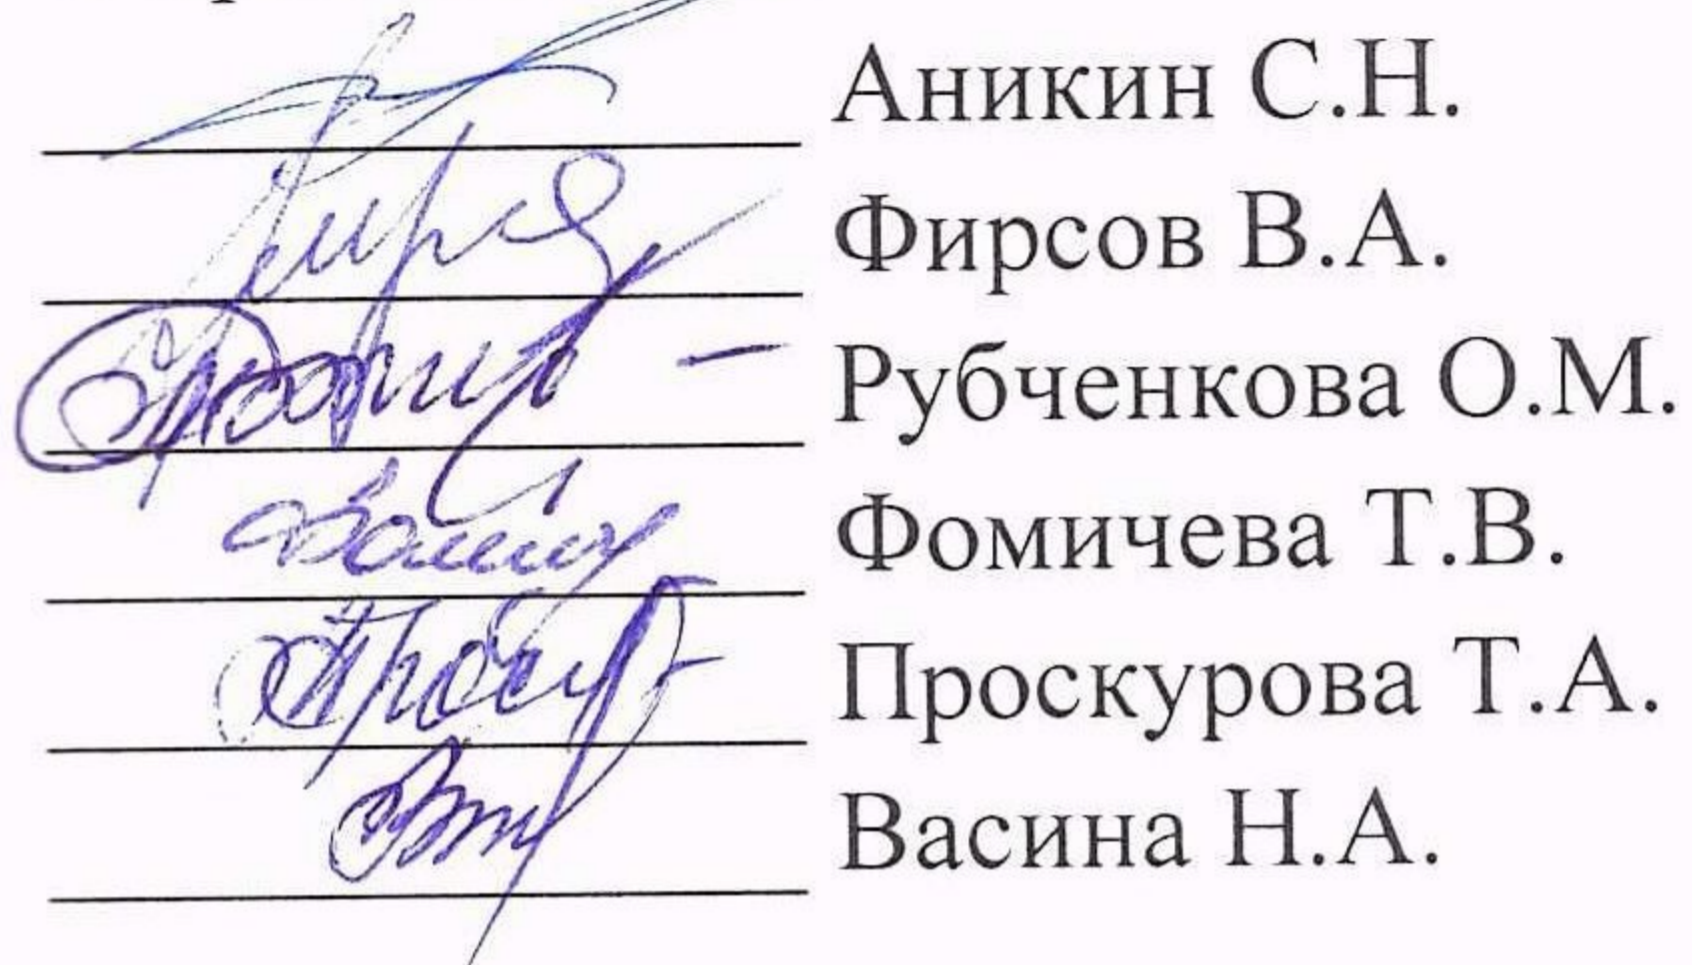 Аникин С.Н.
Фирсов В.А.
Рубченкова О.М.
Фомичева Т.В.
Проскурова Т.А.
Васина Н.А.